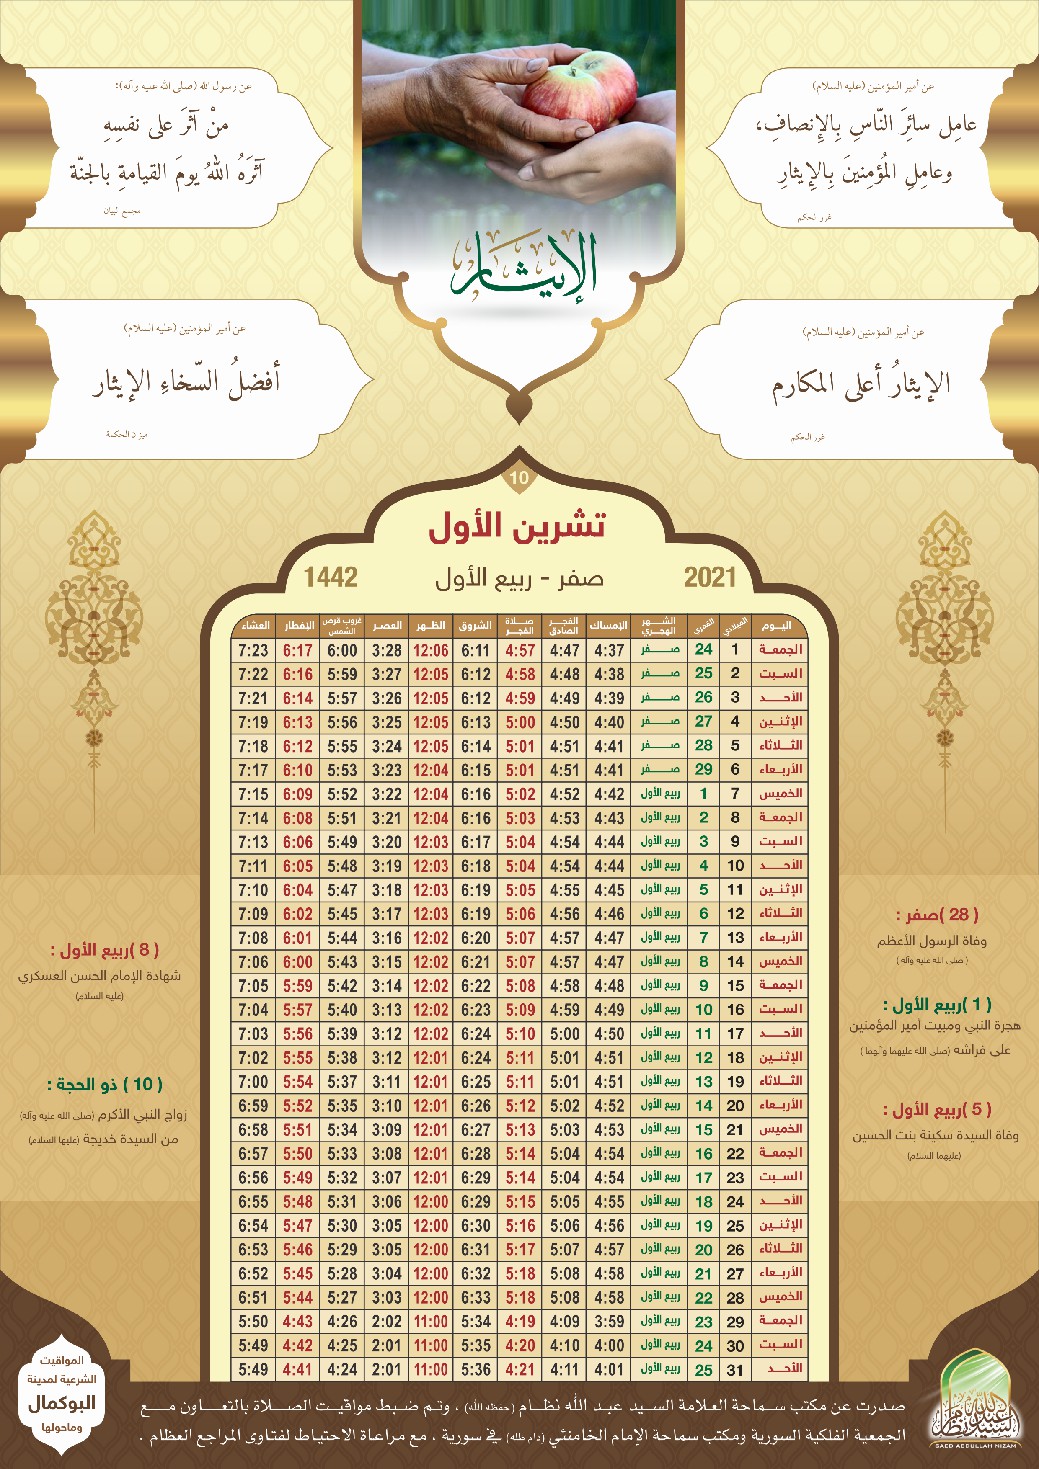 عن أمير المؤمنين (عليه السلام)
عامِل سائرَ النّاسِ بِالإنصافِ،
وعامِلِ المُؤمِنينَ بِالإيثارِ
غرر الحكم
عن رسول الله (صلى الله عليه وآله):
منْ آثَرَ على نفسِهِ
آثَرَهُ اللهُ يومَ القيامةِ بالجنّة
مجمع البيان
الإيثار
عن أمير المؤمنين (عليه السلام)
الإيثارُ أعلى المكارم
غرر الحكم
عن أمير المؤمنين (عليه السلام)
أفضلُ السّخاءِ الإيثار
ميزان الحكمة
10
تشرين الأول
2021 صفر - ربيع الأول 1442
اليوم الميلادي القمري الشهر الهجري الإمساك الفجر الصادق صلاة الفجر الشروق الظهر العصر غروب قرص الشمس الإفطار العشاء
الجمعة 1 24 صفر 4:37 4:47 4:57 6:11 12:06 3:28 6:00 6:17 7:23
السبت 2 25 صفر 4:38 4:48 4:58 6:12 12:05 3:27 5:59 6:16 7:22
الأحد 3 26 صفر 4:39 4:49 4:59 6:12 12:05 3:26 5:57 6:14 7:21
الإثنين 4 27 صفر 4:40 4:50 5:00 6:13 12:05 3:25 5:56 6:13 7:19
الثلاثاء 5 28 صفر 4:41 4:51 5:01 6:14 12:05 3:24 5:55 6:12 7:18
الأربعاء 6 29 صفر 4:41 4:51 5:01 6:15 12:04 3:23 5:53 6:10 7:17
الخميس 7 1 ربيع الأول 4:42 4:52 5:02 6:16 12:04 3:22 5:52 6:09 7:15
الجمعة 8 2 ربيع الأول 4:43 4:53 5:03 6:16 12:04 3:21 5:51 6:08 7:14
السبت 9 3 ربيع الأول 4:44 4:54 5:04 6:17 12:03 3:20 5:49 6:06 7:13
الأحد 10 4 ربيع الأول 4:44 4:54 5:04 6:18 12:03 3:19 5:48 6:05 7:11
الإثنين 11 5 ربيع الأول 4:45 4:55 5:05 6:19 12:03 3:18 5:47 6:04 7:10
الثلاثاء 12 6 ربيع الأول 4:46 4:56 5:06 6:19 12:03 3:17 5:45 6:02 7:09
الأربعاء 13 7 ربيع الأول 4:47 4:57 5:07 6:20 12:02 3:16 5:44 6:01 7:08
الخميس 14 8 ربيع الأول 4:47 4:57 5:07 6:21 12:02 3:15 5:43 6:00 7:06
الجمعة 15 9 ربيع الأول 4:48 4:58 5:08 6:22 12:02 3:14 5:42 5:59 7:05
السبت 16 10 ربيع الأول 4:49 4:59 5:09 6:23 12:02 3:13 5:40 5:57 7:04
الأحد 17 11 ربيع الأول 4:50 5:00 5:10 6:24 12:02 3:12 5:39 5:56 7:03
الإثنين 18 12 ربيع الأول 4:51 5:01 5:11 6:24 12:01 3:12 5:38 5:55 7:02
الثلاثاء 19 13 ربيع الأول 4:51 5:01 5:11 6:25 12:01 3:11 5:37 5:54 7:00
الأربعاء 20 14 ربيع الأول 4:52 5:02 5:12 6:26 12:01 3:10 5:35 5:52 6:59
الخميس 21 15 ربيع الأول 4:53 5:03 5:13 6:27 12:01 3:09 5:34 5:51 6:58
الجمعة 22 16 ربيع الأول 4:54 5:04 5:14 6:28 12:01 3:08 5:33 5:50 6:57
السبت 23 17 ربيع الأول 4:54 5:04 5:14 6:29 12:01 3:07 5:32 5:49 6:56
الأحد 24 18 ربيع الأول 4:55 5:05 5:15 6:29 12:00 3:06 5:31 5:48 6:55
الإثنين 25 19 ربيع الأول 4:56 5:06 5:16 6:30 12:00 3:05 5:30 5:47 6:54
الثلاثاء 26 20 ربيع الأول 4:57 5:07 5:17 6:31 12:00 3:05 5:29 5:46 6:53
الأربعاء 27 21 ربيع الأول 4:58 5:08 5:18 6:32 12:00 3:04 5:28 5:45 6:52
الخميس 28 22 ربيع الأول 4:58 5:08 5:18 6:33 12:00 3:03 5:27 5:44 6:51
الجمعة 29 23 ربيع الأول 3:59 4:09 4:19 5:34 11:00 2:02 4:26 4:43 5:50
السبت 30 24 ربيع الأول 4:00 4:10 4:20 5:35 11:00 2:01 4:25 4:42 5:49
الأحد 31 25 ربيع الأول 4:01 4:11 4:21 5:36 11:00 2:01 4:24 4:41 5:49
( 28 )صفر :
وفاة الرسول الأعظم
( صلى الله عليه وآله )
( 1 )ربيع الأول :
هجرة النبي ومبيت أمير المؤمنين
على فراشه (صلى الله عليهما وآلهما )
( 5 )ربيع الأول :
وفاة السيدة سكينة بنت الحسين
(عليهما السلام)
( 8 )ربيع الأول :
شهادة الإمام الحسن العسكري
(عليه السلام)
( 10 ) ذو الحجة :
زواج النبي الأكرم (صلى الله عليه وآله)
من السيدة خديجة (عليها السلام)
صدرت عن مكتب سماحة العلامة السيد عبد الله نظام (حفظه الله) ، وتم ضبط مواقيت الصلاة بالتعاون مع
الجمعية الفلكية السورية ومكتب سماحة الإمام الخامنئي (دام ظله) في سورية ، مع مراعاة الاحتياط لفتاوى المراجع العظام .
المواقيت
الشرعية لمدينة
البوكمال
وماحولها
السيد عبدالله نظام
SAED ABDULLAH NIZAM